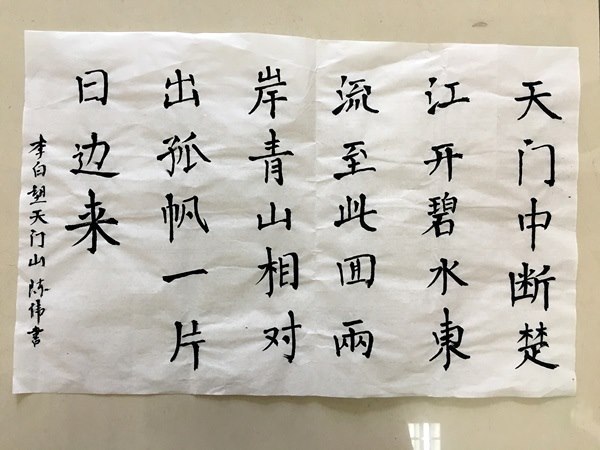 天门中断楚
江开碧水東
流至此囬兩
岸青山相对
出孤帆一片
日边来
李白望天门山 陈伟書